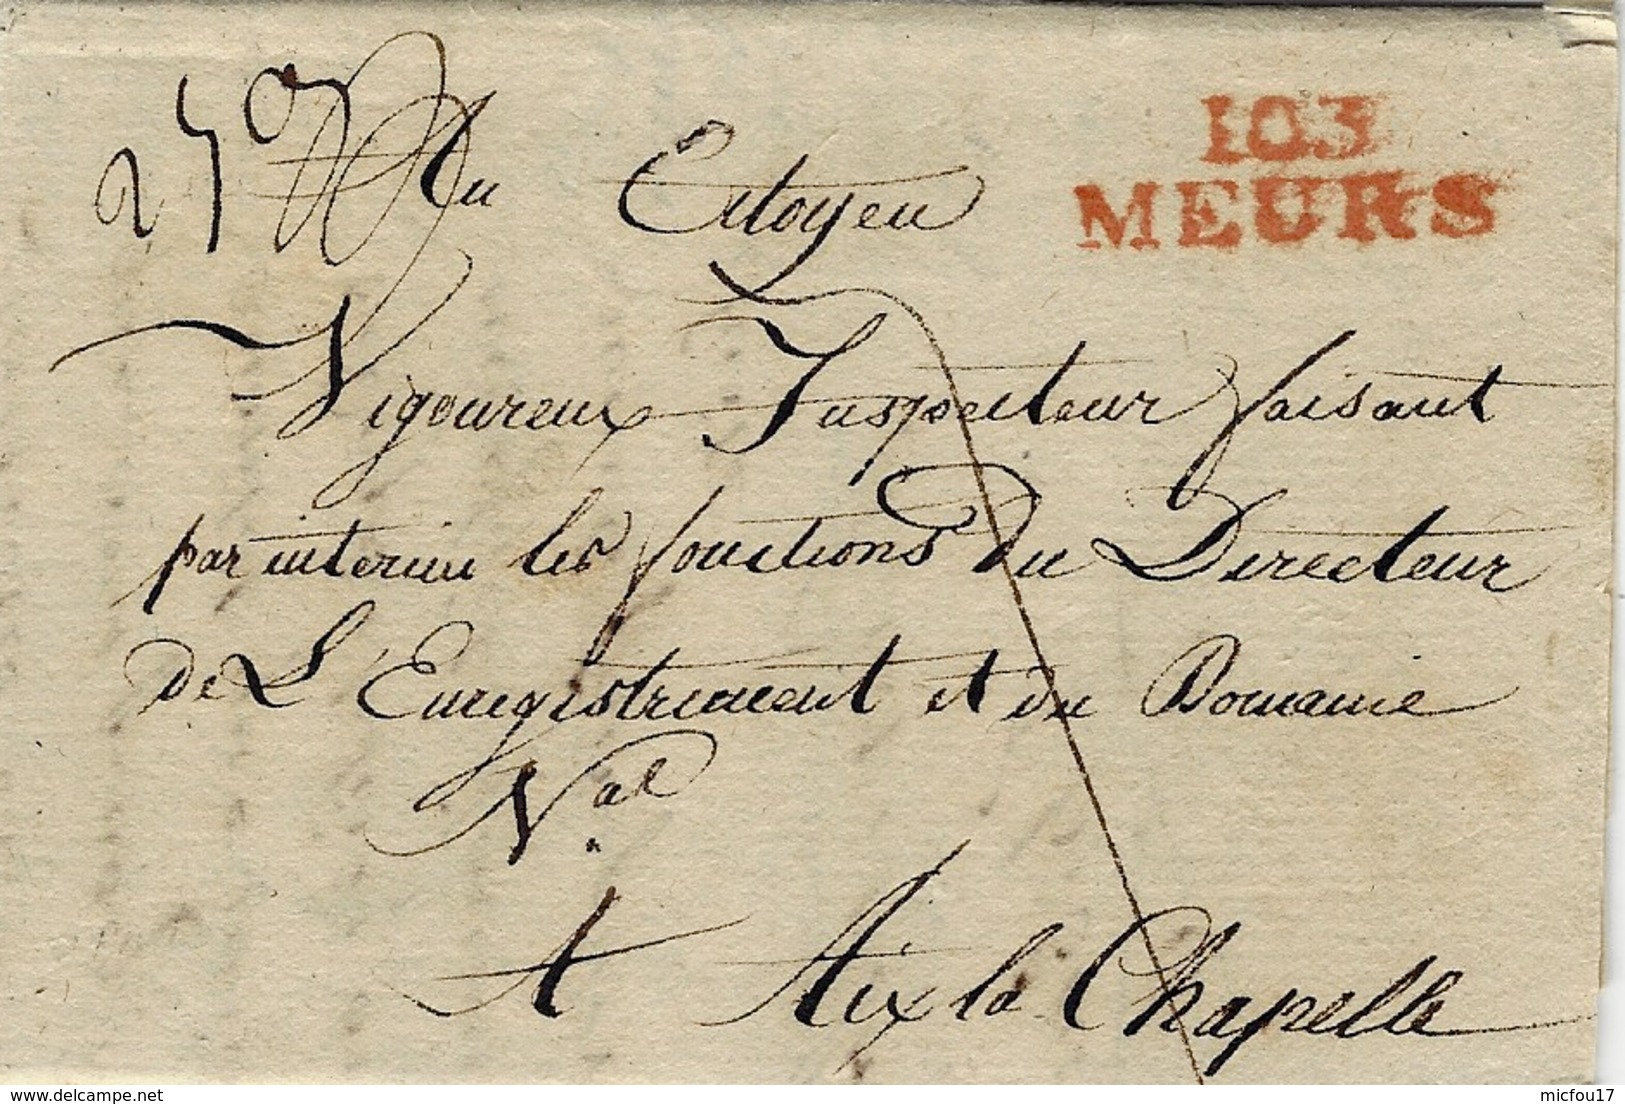 103
MEURS
Au Citoyen
Vigoureux Inspecteur faisant
par interim les fonctions du Directeur
de L'Enregistrement et du Domaine
Nal
A Aix la Chapelle
delcampe.net
micfou17